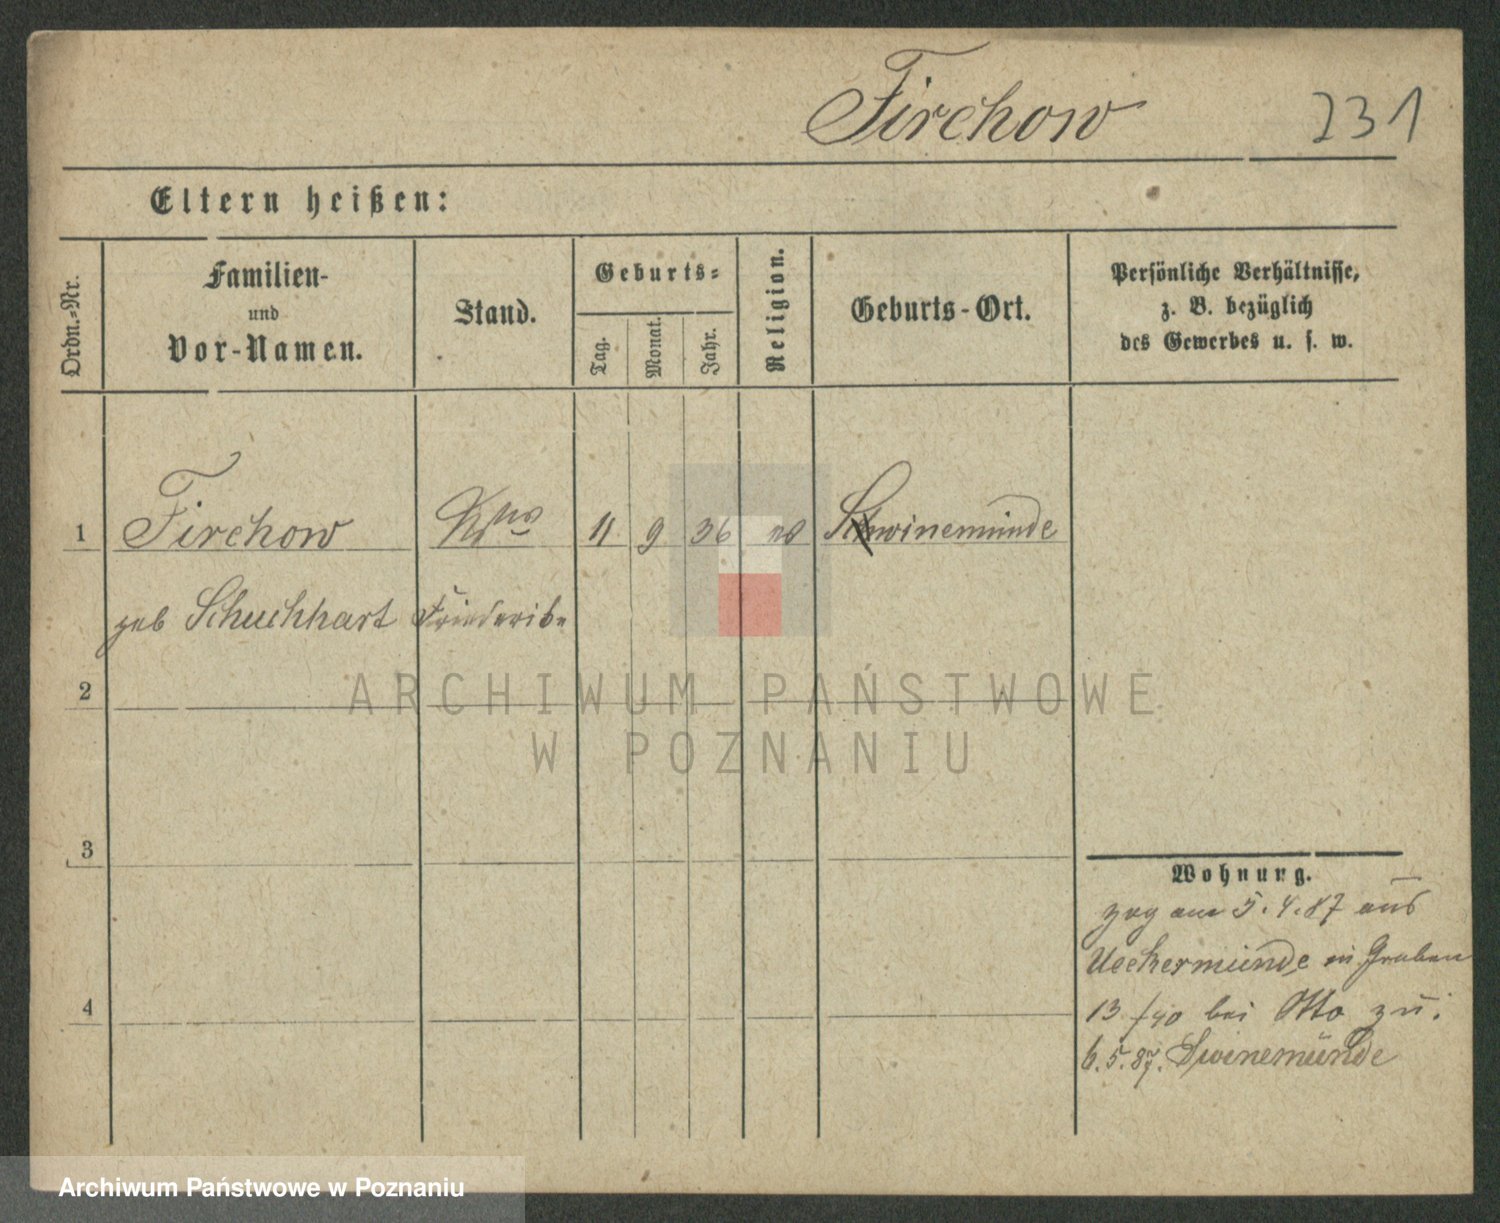 Firchow 231
Eltern heißen:
Ordn.-Nr.
Familien-
und
Vor-Namen.
Stand.
Geburts-
Tag.
Monat.
Jahr.
Religion.
Geburts-Ort.
Persönliche Verhältnisse,
z. B. bezüglich
des Gewerbes u. s. w.
1 Firchow Wwe 11 9 36 ev Schwinemünde
geb Schuchhart Friederike
2
3
4
Wohnung.
zog am 5.4.87 aus
Ueckermünde in Graben
13 bei Otto zu.
6.5.87. Swinemünde
ARCHIWUM PAŃSTWOWE
W POZNANIU
Archiwum Państwowe w Poznaniu